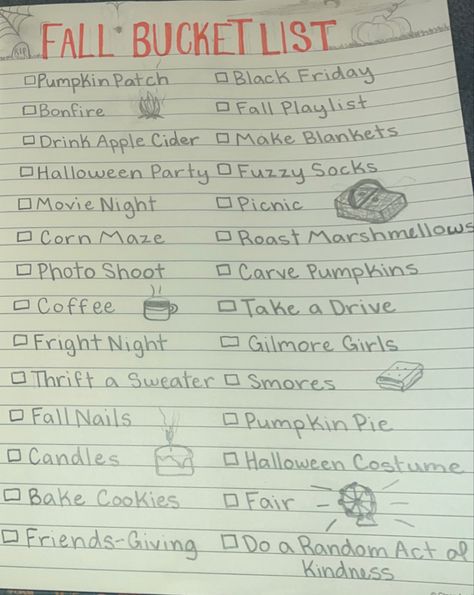 RIP
FALL BUCKET LIST
Pumpkin Patch
Bonfire
Drink Apple Cider
Halloween Party
Movie Night
Corn Maze
Photo Shoot
Coffee
Fright Night
Thrift a Sweater
Fall Nails
Candles
Bake Cookies
Friends-Giving
Black Friday
Fall Playlist
Make Blankets
Fuzzy Socks
Picnic
Roast Marshmellows
Carve Pumpkins
Take a Drive
Gilmore Girls
Smores
Pumpkin Pie
Halloween Costume
Fair
Do a Random Act of
Kindness